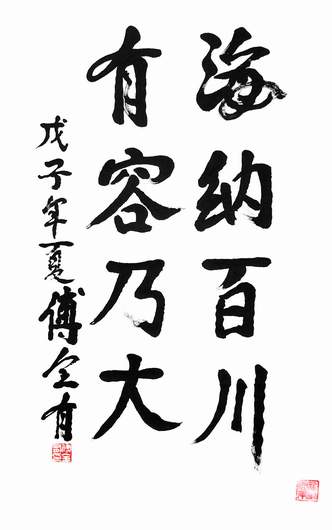 海纳百川
有容乃大
戊子年夏傅全有